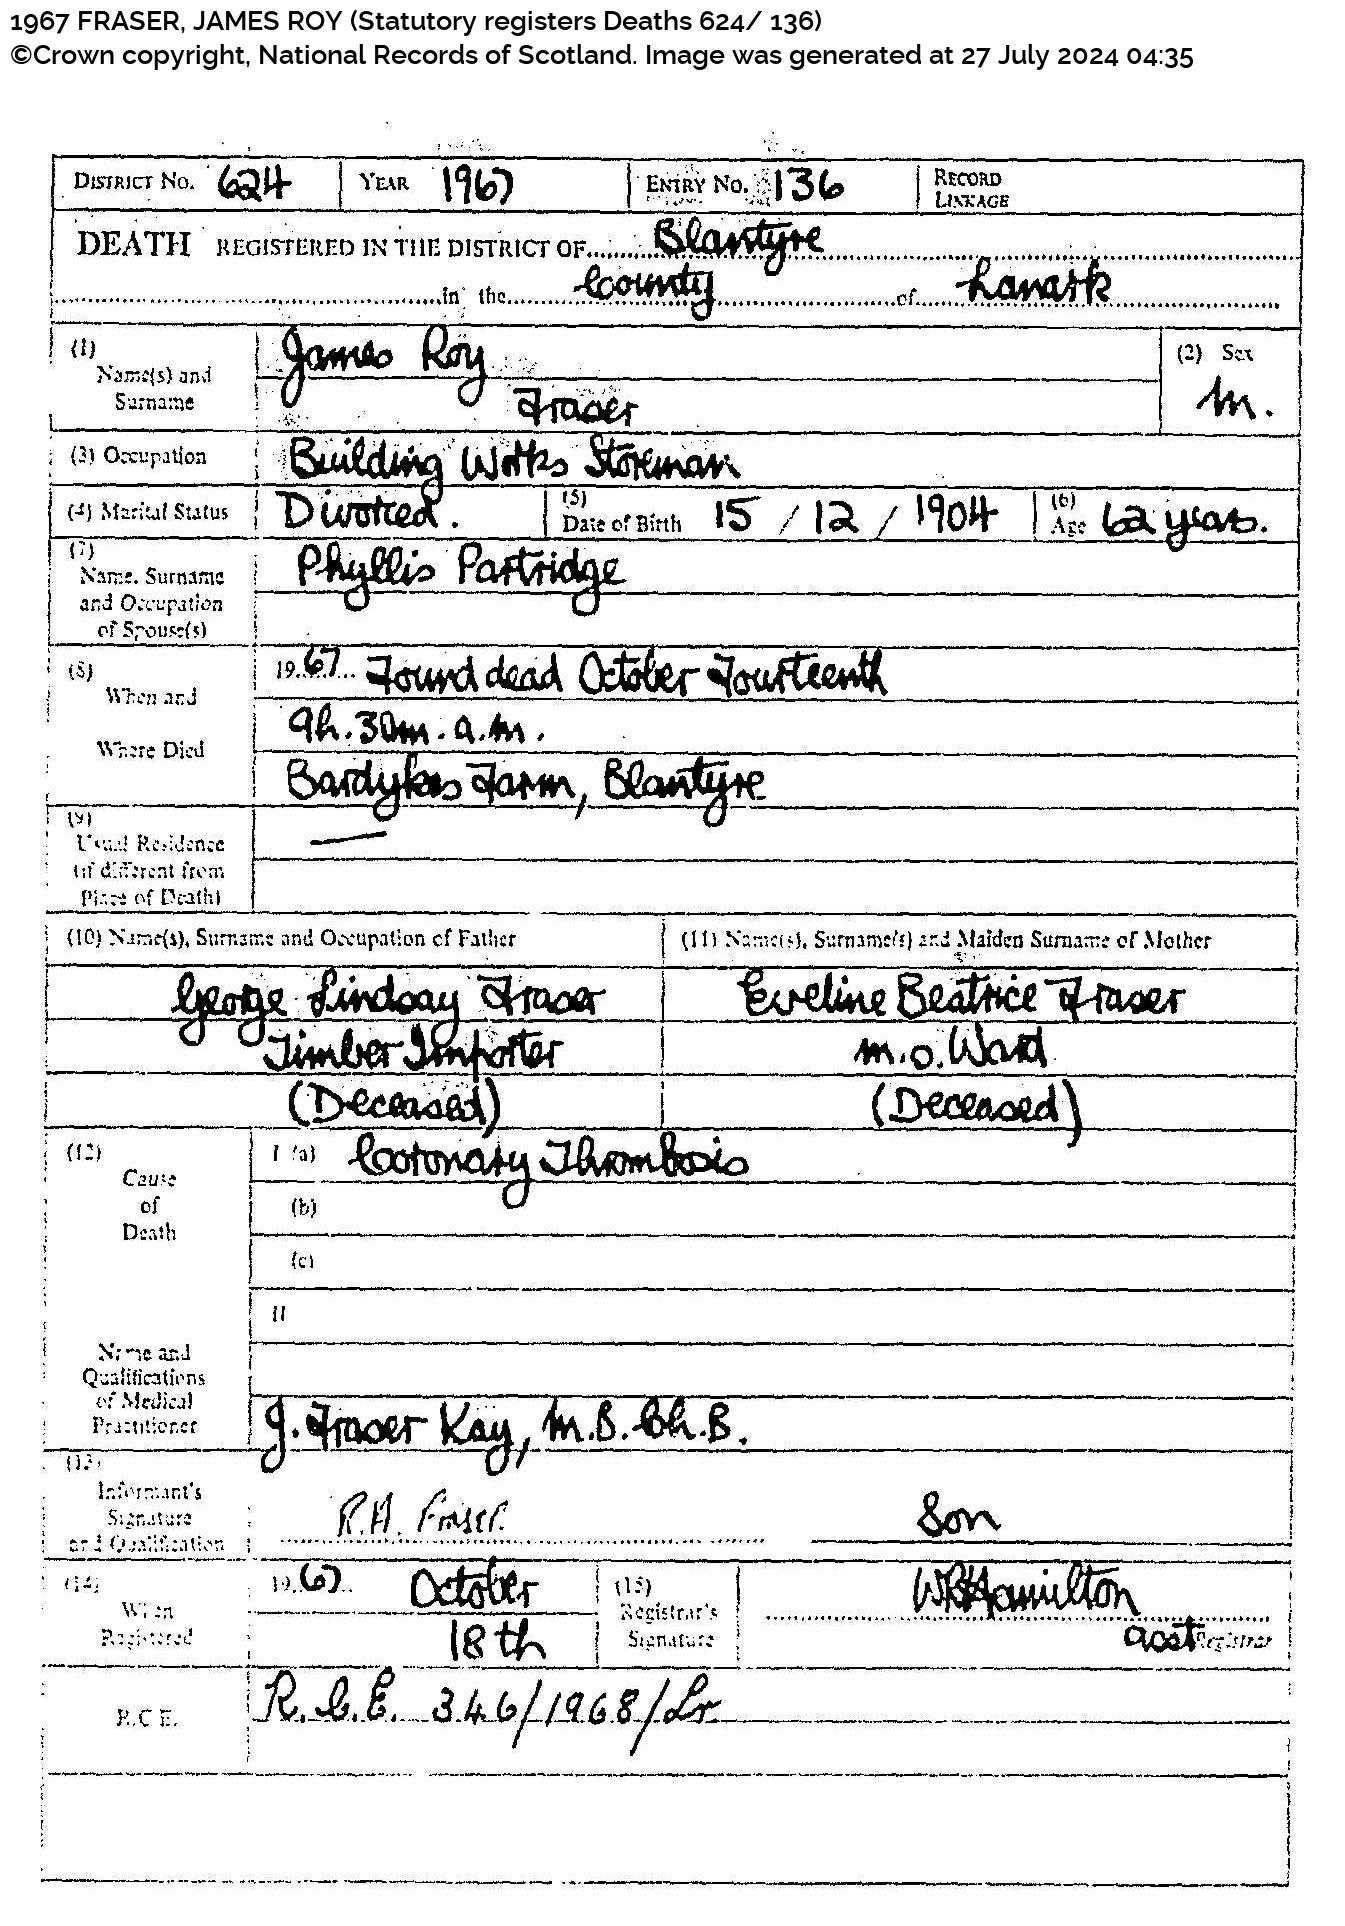 1967 FRASER, JAMES ROY (Statutory registers Deaths 624/ 136)
©Crown copyright, National Records of Scotland. Image was generated at 27 July 2024 04:35
DISTRICT NO. 624 YEAR 1967 ENTRY NO. 136 RECORD LINKAGE
DEATH REGISTERED IN THE DISTRICT OF Blantyre
in the County of Lanark
(1) Name(s) and Surname James Roy (2) Sex
Fraser M.
(3) Occupation Building Works Storeman
(4) Marital Status Divorced. (5) Date of Birth 15 / 12 / 1904 (6) Age 62 years.
(7) Name, Surname and Occupation of Spouse(s) Phyllis Partridge
(8) When and Where Died 1967 Found dead October Fourteenth
9h. 30m. a.m.
Bardykes Farm, Blantyre
(9) Usual Residence (if different from Place of Death) —
(10) Name(s), Surname and Occupation of Father (11) Name(s), Surname(s) and Maiden Surname of Mother
George Lindsay Fraser Eveline Beatrice Fraser
Timber Importer m.o. Ward
(Deceased) (Deceased)
(12) Cause of Death I (a) Coronary Thrombosis
(b)
(c)
II
Name and Qualifications of Medical Practitioner J. Fraser Kay, M.B. Ch.B.
(13) Informant's Signature and Qualification R.H. Fraser. Son
(14) When Registered 1967 October (15) Registrar's Signature WRHamilton
18th asst Registrar
R.C.E. R.C.E. 346/1968/Lr.